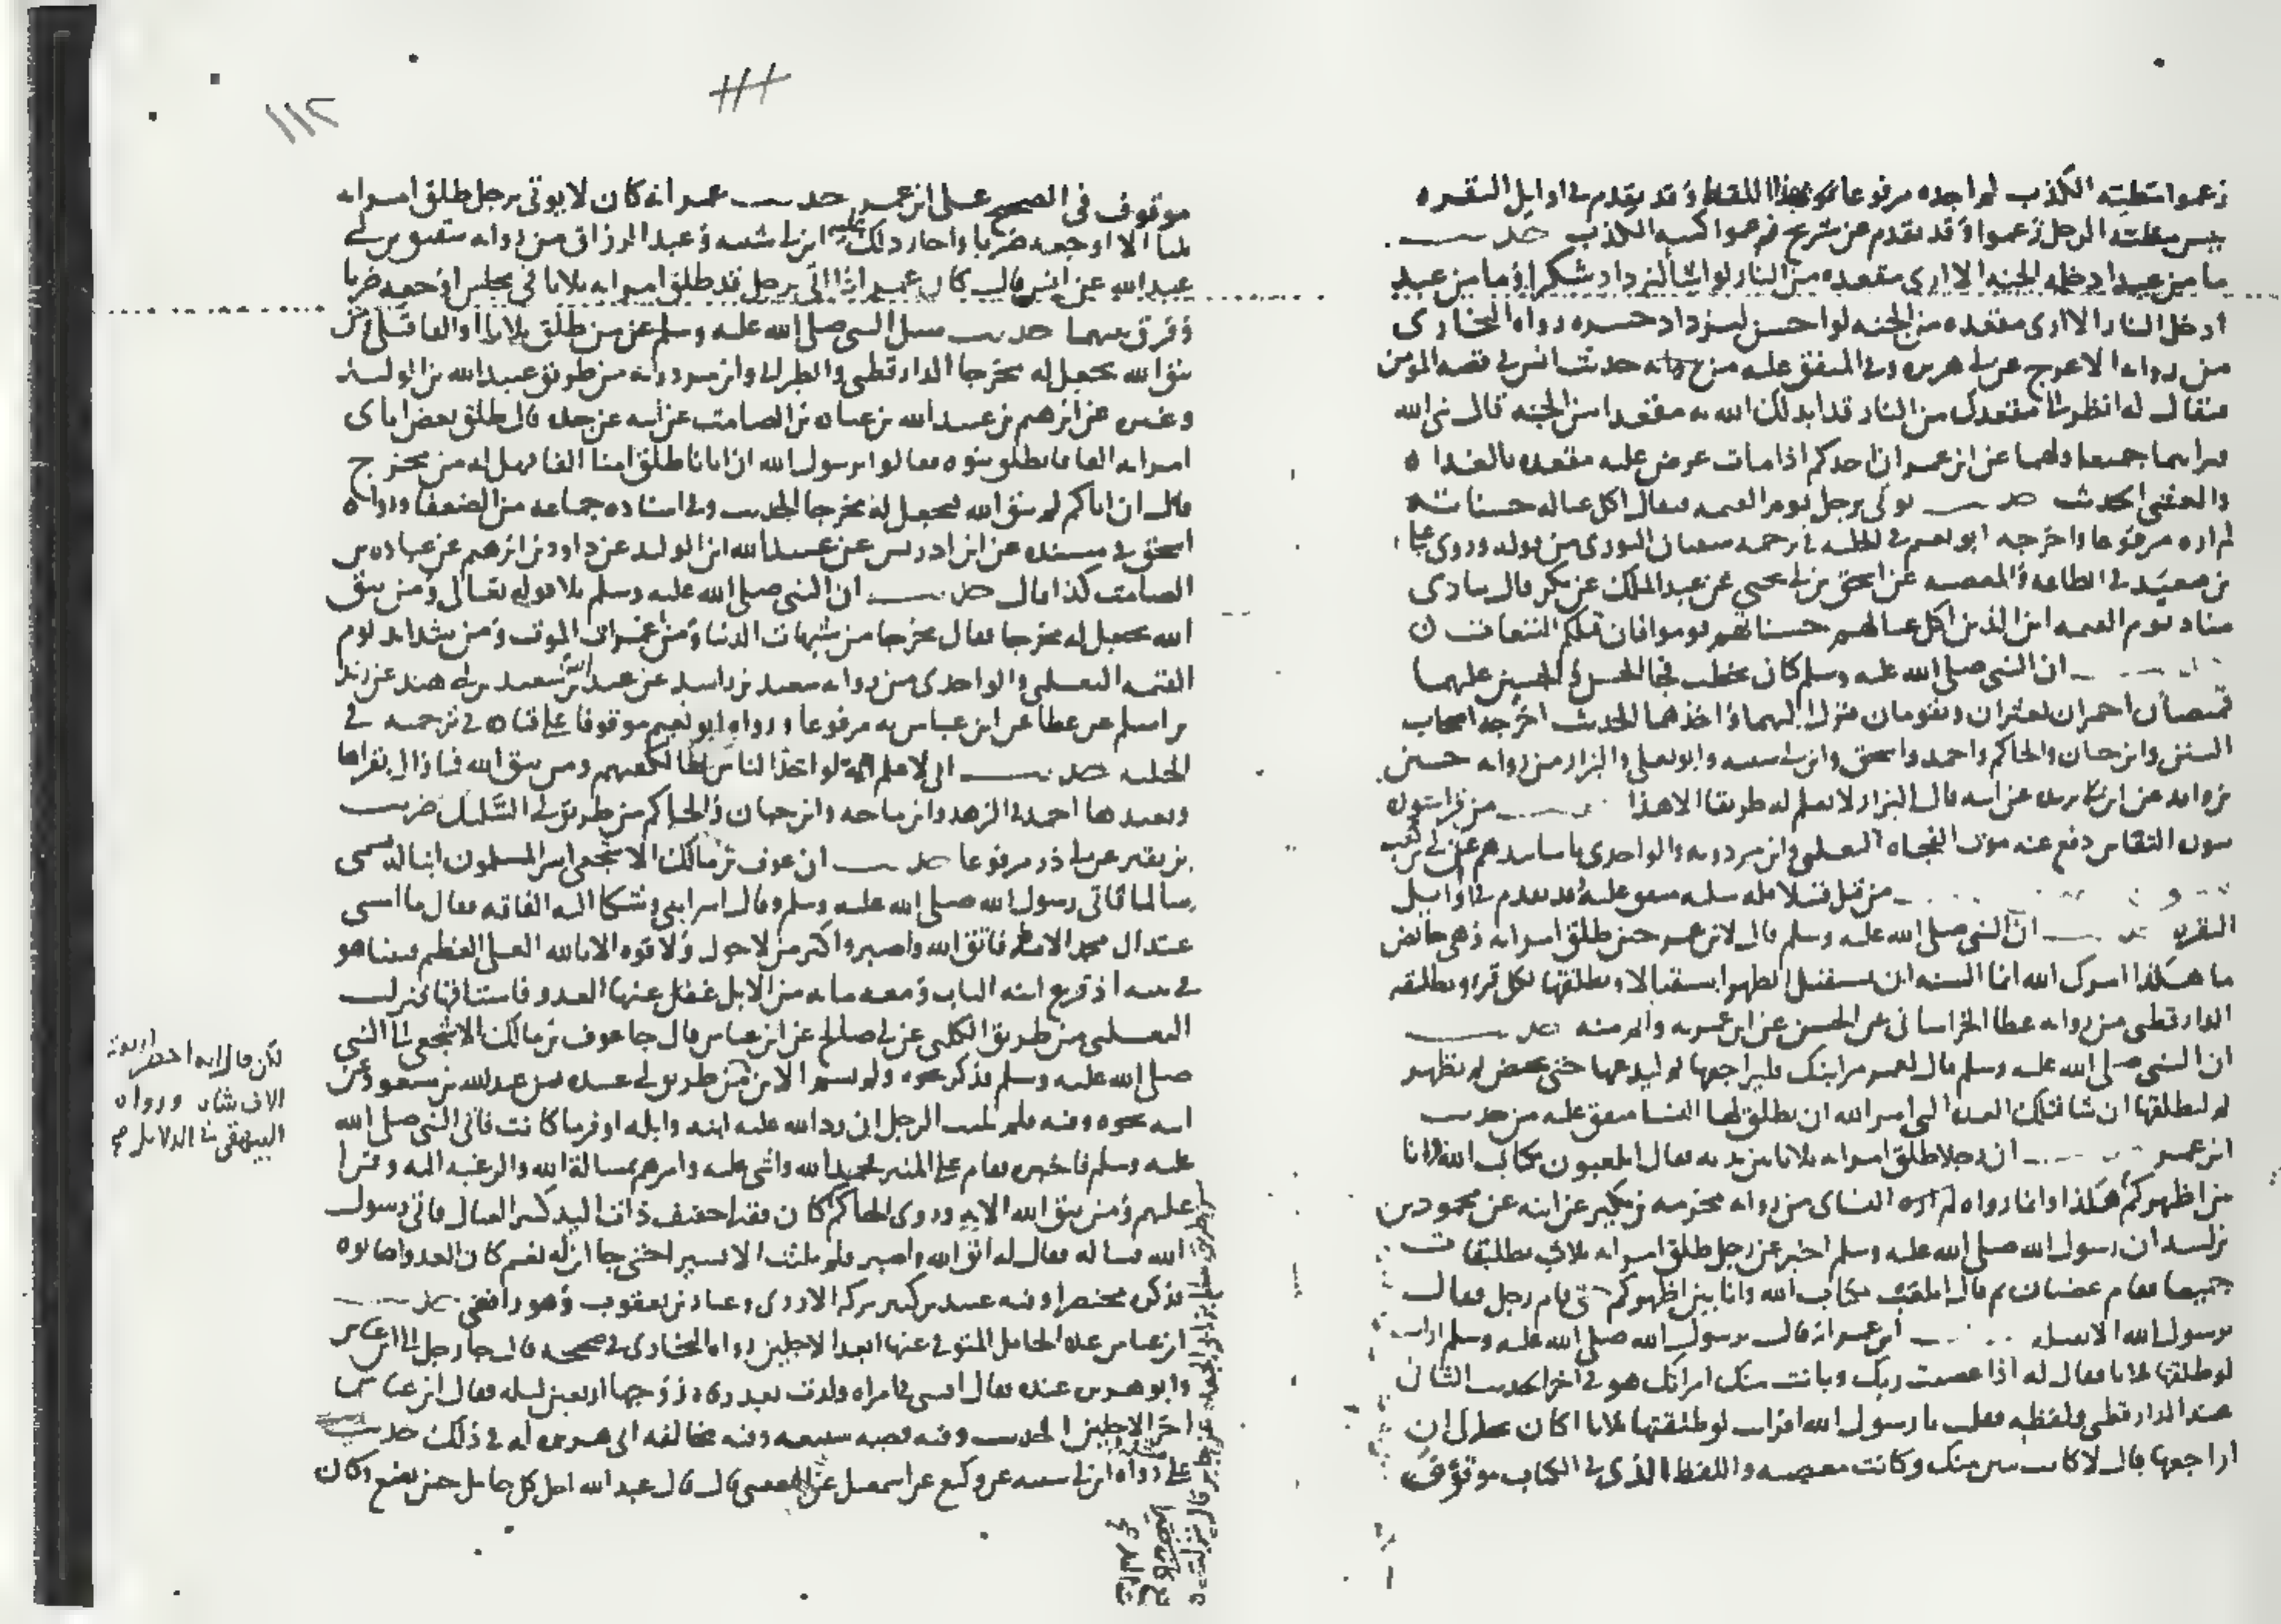 زعموا مطية الكذب لم اجده مرفوعا بهذا اللفظ وقد تقدم في اوايل البقره
بيس مطية الرجل زعموا وقد تقدم عن شريح زعموا كنية الكذب حديث
ما من عبد ادخله الجنه الا ارى مقعده من النار لو اسا ليزداد شكرا وما من عبد
ادخل النار الا ارى مقعده من الجنه لو احسن ليزداد حسره رواه البخارى
من روايه الاعرج عن ابي هريره وفي المتفق عليه من حديث انس في قصه المومن
فيقال له انظر الى مقعدك من النار قد ابدلك الله به مقعدا من الجنه قال نبي الله
فيراهما جميعا ولهما عن ابن عمر ان احدكم اذا مات عرض عليه مقعده بالغداه
والعشي الحديث حديث يوتى برجل يوم القيمه فيقال اكل عياله حسناته
لم اره مرفوعا واخرجه ابو نعيم في الحليه في ترجمه سفيان الثورى من قوله وروى علي
بن معبد في الطاعه والمعصيه عن اسحق بن ابي يحيى عن عبد الملك عن بكر قال ينادى
مناد يوم القيمه اين الذين اكل عيالهم حسناتهم قوموا فان قبلكم التبعات
ان النبي صلى الله عليه وسلم كان يخطب فجا الحسن والحسين عليهما
قميصان احمران يعثران ويقومان فنزل اليهما واخذهما الحديث اخرجه اصحاب
السنن وابن حبان والحاكم واحمد واسحق وابن ابي شيبه وابو يعلى والبزار من روايه حسين
بن واقد عن ابن بريده عن ابيه قال البزار لا نعلم له طريقا الا هذا من قرا
سورة التغابن دفع عنه موت الفجاه الثعلبي وابن مردويه والواحدى باسانيدهم عن ابي بن كعب
من قتل قتيلا فله سلبه متفق عليه وقد تقدم في اوايل
البقره ان النبي صلى الله عليه وسلم قال لابن عمر حين طلق امراته وهي حائض
ما هكذا امرك الله انما السنه ان تستقبل الطهر استقبالا وتطلقها لكل قرو تطليقه
الدارقطنى من روايه عطا الخراسانى عن الحسن عن ابن عمر به واتم منه حديث
ان النبي صلى الله عليه وسلم قال لعمر مر ابنك فليراجعها ثم ليدعها حتى تحيض ثم تطهر
ثم ليطلقها ان شا فتلك العده التي امر الله ان يطلق لها النسا متفق عليه من حديث
ابن عمر ان رجلا طلق امراته ثلاثا بين يديه فقال اتلعبون بكتاب الله وانا
بين اظهركم هكذا وانما رواه النساى من روايه مخرمه بن بكير عن ابيه عن محمود بن
لبيد ان رسول الله صلى الله عليه وسلم اخبر عن رجل طلق امراته ثلاث تطليقات
جميعا فقام غضبان ثم قال ايلعب بكتاب الله وانا بين اظهركم حتى قام رجل فقال
يرسول الله الا نقتله ابن عمر انه قال يرسول الله صلى الله عليه وسلم ارايت
لو طلقتها ثلاثا فقال له اذا عصيت ربك وبانت منك امراتك هو في اخر الحديث الثانى
عند الدارقطنى ولفظه فقلت يا رسول الله افرايت لو طلقتها ثلاثا اكان يحل لي ان
اراجعها قال لا كانت تبين منك وكانت معصيه واللفظ الذى في الكتاب موقوف
١١٢
موقوف فى الصحيح على ابن عمر حديث عمر انه كان لا يوتى برجل طلق امراته
ثلثا الا اوجعه ضربا واجاز ذلك عليه ابن ابي شيبه وعبد الرزاق من روايه شقيق بن ابي
عبد الله عن انس قال كان عمر اذا اتى برجل قد طلق امراته ثلاثا في مجلس اوجعه ضربا
وفرق بينهما حديث سيل النبي صلى الله عليه وسلم عن من طلق ثلاثا او الفا
يتق الله يجعل له مخرجا الدارقطنى والطبراني وابن مردويه من طريق عبيد الله بن الوليد
وغيره عن ابرهيم بن عبيد الله بن عباده بن الصامت عن ابيه عن جده قال طلق بعض اباى
امراته الفا فانطلق بنوه فقالوا يرسول الله ان ابانا طلق امنا الفا فهل له من مخرج
فقال ان اباكم لم يتق الله فيجعل له مخرجا الحديث وفي اسناده جماعه من الضعفا ورواه
اسحق في مسنده عن ابن ادريس عن عبيد الله ابن الوليد عن داود بن ابرهيم عن عباده بن
الصامت كذا قال حديث ان النبي صلى الله عليه وسلم تلا قوله تعالى ومن يتق
الله يجعل له مخرجا فقال مخرجا من شبهات الدنيا ومن غمرات الموت ومن شدايد يوم
القيمه الثعلبي والواحدى من روايه سعيد بن راشد عن عبد الله بن سعيد بن ابي هند عن زيد
بن اسلم عن عطا عن ابن عباس به مرفوعا ورواه ابو نعيم موقوفا على قتاده في ترجمته في
الحليه حديث انى لاعلم ايه لو اخذ الناس بها لكفتهم ومن يتق الله فما زال يقراها
ويعيدها احمد في الزهد وابن ماجه وابن حبان والحاكم من طريق ابي السليل ضريب
بن نقير عن ابي ذر مرفوعا حديث ان عوف بن مالك الاشجعي اسر المشركون ابنا له يسمى
سالما فاتى رسول الله صلى الله عليه وسلم وقال اسر ابني وشكا اليه الفاقه فقال ما امسى
عند ال محمد الا مد فاتق الله واصبر واكثر من لا حول ولا قوه الا بالله العلي العظيم فبينا هو
في بيته اذ قرع ابنه الباب ومعه مايه من الابل غفل عنها العدو فاستاقها فنزلت
الثعلبي من طريق الكلبي عن ابي صالح عن ابن عباس قال جا عوف بن مالك الاشجعي الى النبي
صلى الله عليه وسلم فذكر نحوه ولم يسم الابن من طريق ابي عبيده بن عبد الله بن مسعود عن
ابيه نحوه وفيه فلم يلبث الرجل ان رد الله عليه ابنه وابله اوفر ما كانت فاتى النبي صلى الله
عليه وسلم فاخبره فقام على المنبر فحمد الله واثنى عليه وامرهم بمسالة الله والرغبه اليه وقرا
عليهم ومن يتق الله الايه وروى الحاكم كان فقير خفيف ذات اليد كثير العيال فاتى رسول
الله فساله فقال له اتق الله واصبر فلم يلبث الا يسيرا حتى جا ابن له بغنم كان العدو اصابوه
فذكره مختصرا وفيه عبيد بن كثير تركه الازدى وعباد بن يعقوب وهو رافضي حديث
ابن عباس عده الحامل المتوفي عنها ابعد الاجلين رواه البخارى في صحيحه قال جا رجل الى ابن عباس
وابو هريره عنده فقال افتنى في امراه ولدت بعد زوجها اربعين ليله فقال ابن عباس
اخر الاجلين الحديث وفيه قصه سبيعه وفيه مخالفه ابى هريره له في ذلك حديث
رواه ابن ابي شيبه عن وكيع عن اسمعيل عن الشعبى قال قال عبد الله اجل كل حامل حتى تضع وكان
لكن قال انه اربعه
الاف شاه ورواه
البيهقي في الدلايل